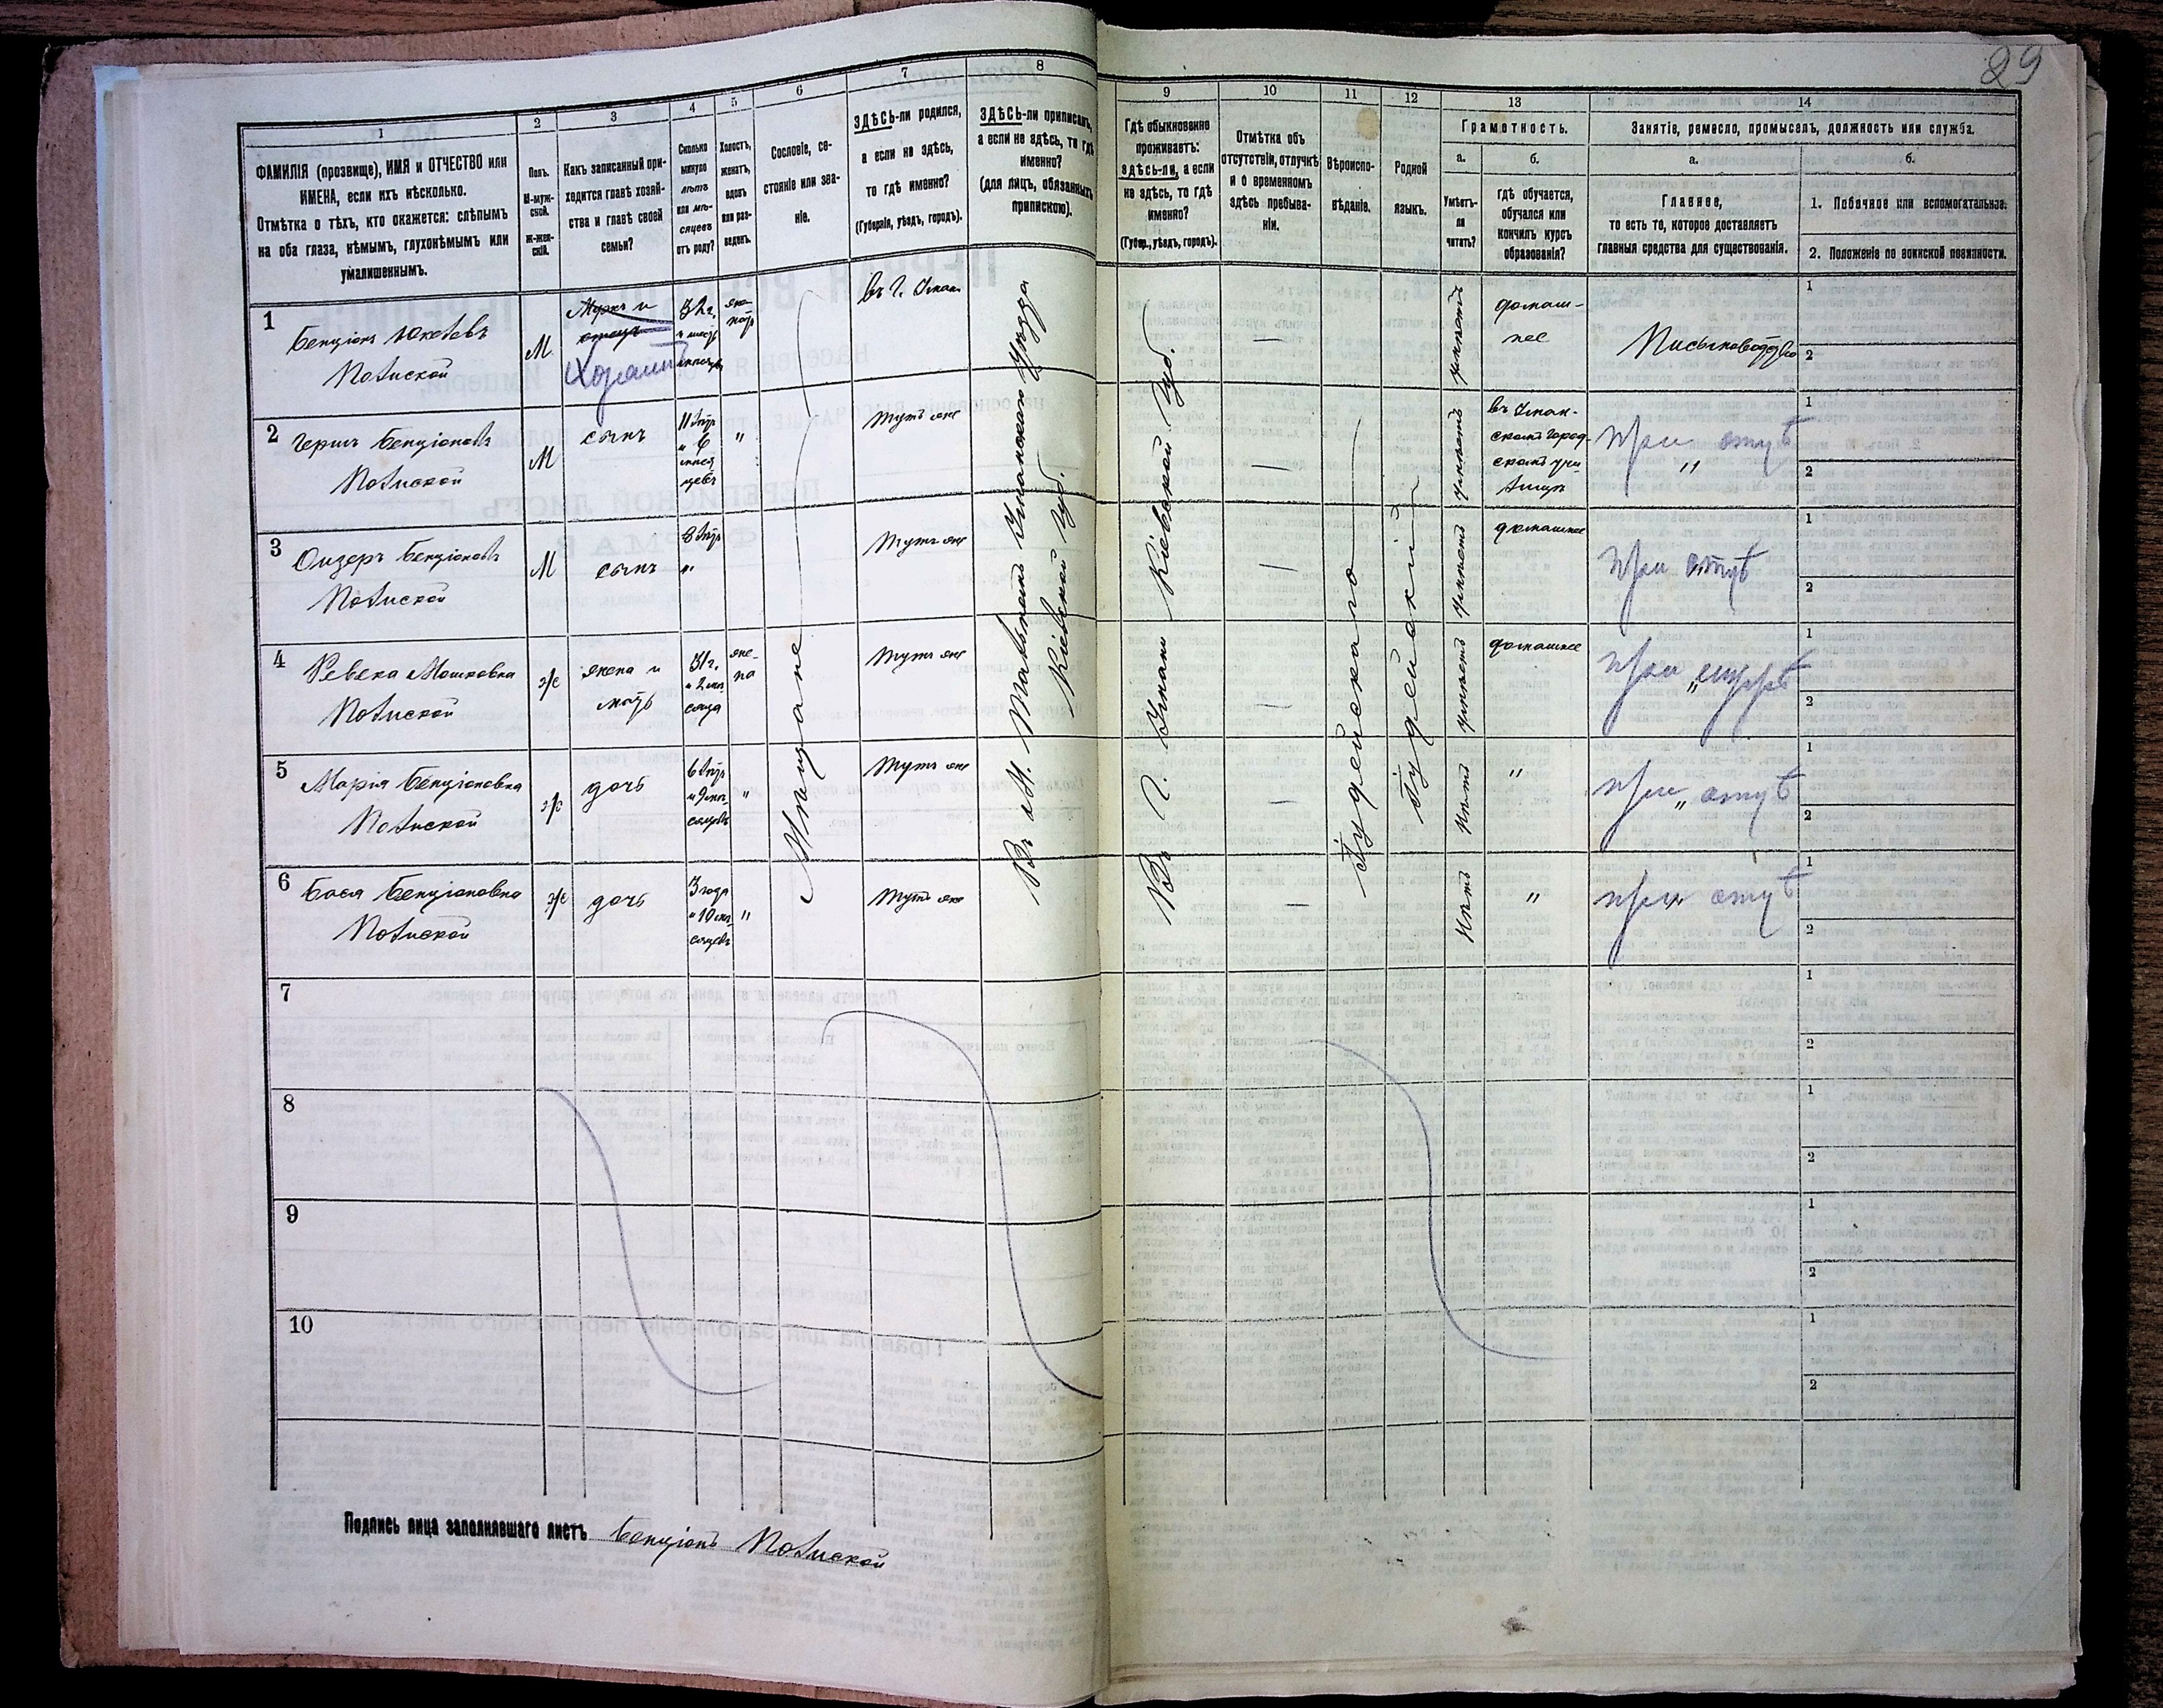 29
1 2 3 4 5 6 7 8 9 10 11 12 13 14
ФАМИЛІЯ (прозвище), ИМЯ и ОТЧЕСТВО или
ИМЕНА, если ихъ нѣсколько.
Отмѣтка о тѣхъ, кто окажется: слѣпымъ
на оба глаза, нѣмымъ, глухонѣмымъ или
умалишеннымъ.
Полъ.
М-муж-
ской.
Ж-жен-
скій.
Какъ записанный при-
ходится главѣ хозяй-
ства и главѣ своей
семьи?
Сколько
минуло
лѣтъ
или мѣ-
сяцевъ
отъ роду?
Холостъ,
женатъ,
вдовъ
или раз-
веденъ.
Сословіе, со-
стояніе или зва-
ніе.
ЗДѢСЬ-ли родился,
а если не здѣсь,
то гдѣ именно?
(Губернія, уѣздъ, городъ).
ЗДѢСЬ-ли приписанъ,
а если не здѣсь, то гдѣ
именно?
(для лицъ, обязанныхъ
припискою).
Гдѣ обыкновенно
проживаетъ:
здѣсь-ли, а если
не здѣсь, то гдѣ
именно?
(Губер., уѣздъ, городъ).
Отмѣтка объ
отсутствіи, отлучкѣ
и о временномъ
здѣсь пребыва-
ніи.
Вѣроиспо-
вѣданіе.
Родной
языкъ.
Грамотность.
а.
Умѣетъ-
ли
читать?
б.
Гдѣ обучается,
обучался или
кончилъ курсъ
образованія?
Занятіе, ремесло, промыселъ, должность или служба.
а.
Главное,
то есть то, которое доставляетъ
главныя средства для существованія.
б.
1. Побочное или вспомогательное.
2. Положеніе по воинской повинности.
1
Бенціонъ
Полиской
М
Хозяинъ
32 г.
же-
натъ
въ г. Умани
—
умѣетъ
домаш-
нее
Письмоводство
1
2
2
Гершъ Бенціоновъ
Полиской
М
сынъ
11 лѣтъ
и 6
мѣся
цевъ
"
тутъ же
—
умѣетъ
въ Уман-
скомъ город-
скомъ учи
лищѣ
при отцѣ
1
2
3
Бенціоновъ
Полиской
М
сынъ
8 лѣтъ
"
тутъ же
—
умѣетъ
домашнее
при отцѣ
1
2
4
Ревека Мошковна
Полиской
ж
жена и
мать
31 г.
и 2 мѣ
сяца
же-
на
тутъ же
—
умѣетъ
домашнее
при мужѣ
1
2
5
Марія Бенціоновна
Полиской
ж
дочь
6 лѣтъ
и 9 мѣ-
сяцевъ
"
тутъ же
—
Нѣтъ
"
при отцѣ
1
2
6
Бася Бенціоновна
Полиской
ж
дочь
3 года
и 10 мѣ-
сяцевъ
"
тутъ же
—
Нѣтъ
"
при отцѣ
1
2
Мѣщане
Въ М. Тальномъ Уманского Уѣзда
Кіевской Губ.
Въ г. Умани Кіевской Губ.
Іудейского
Іудейскій
7
1
2
8
1
2
9
1
2
10
1
2
Подпись лица заполнявшаго листъ Бенціонъ Полиской